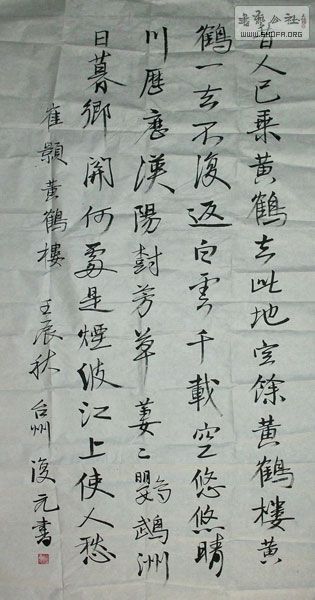 書藝公社
WWW.SHUFA.ORG
昔人已乘黄鶴去此地空餘黄鶴樓黄
鶴一去不復返白雲千載空悠悠晴
川歷歷漢陽樹芳草萋〻鸚鵡洲
日暮鄉關何處是煙波江上使人愁
崔顥黄鶴樓 壬辰秋 台州 復元書